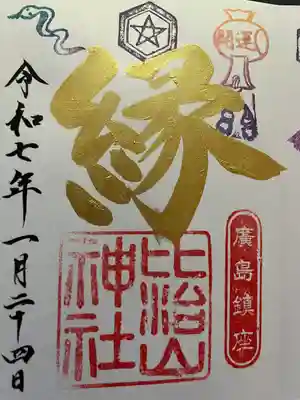 開運
廣島鎮座
縁
比治山
神社
令和七年一月二十四日